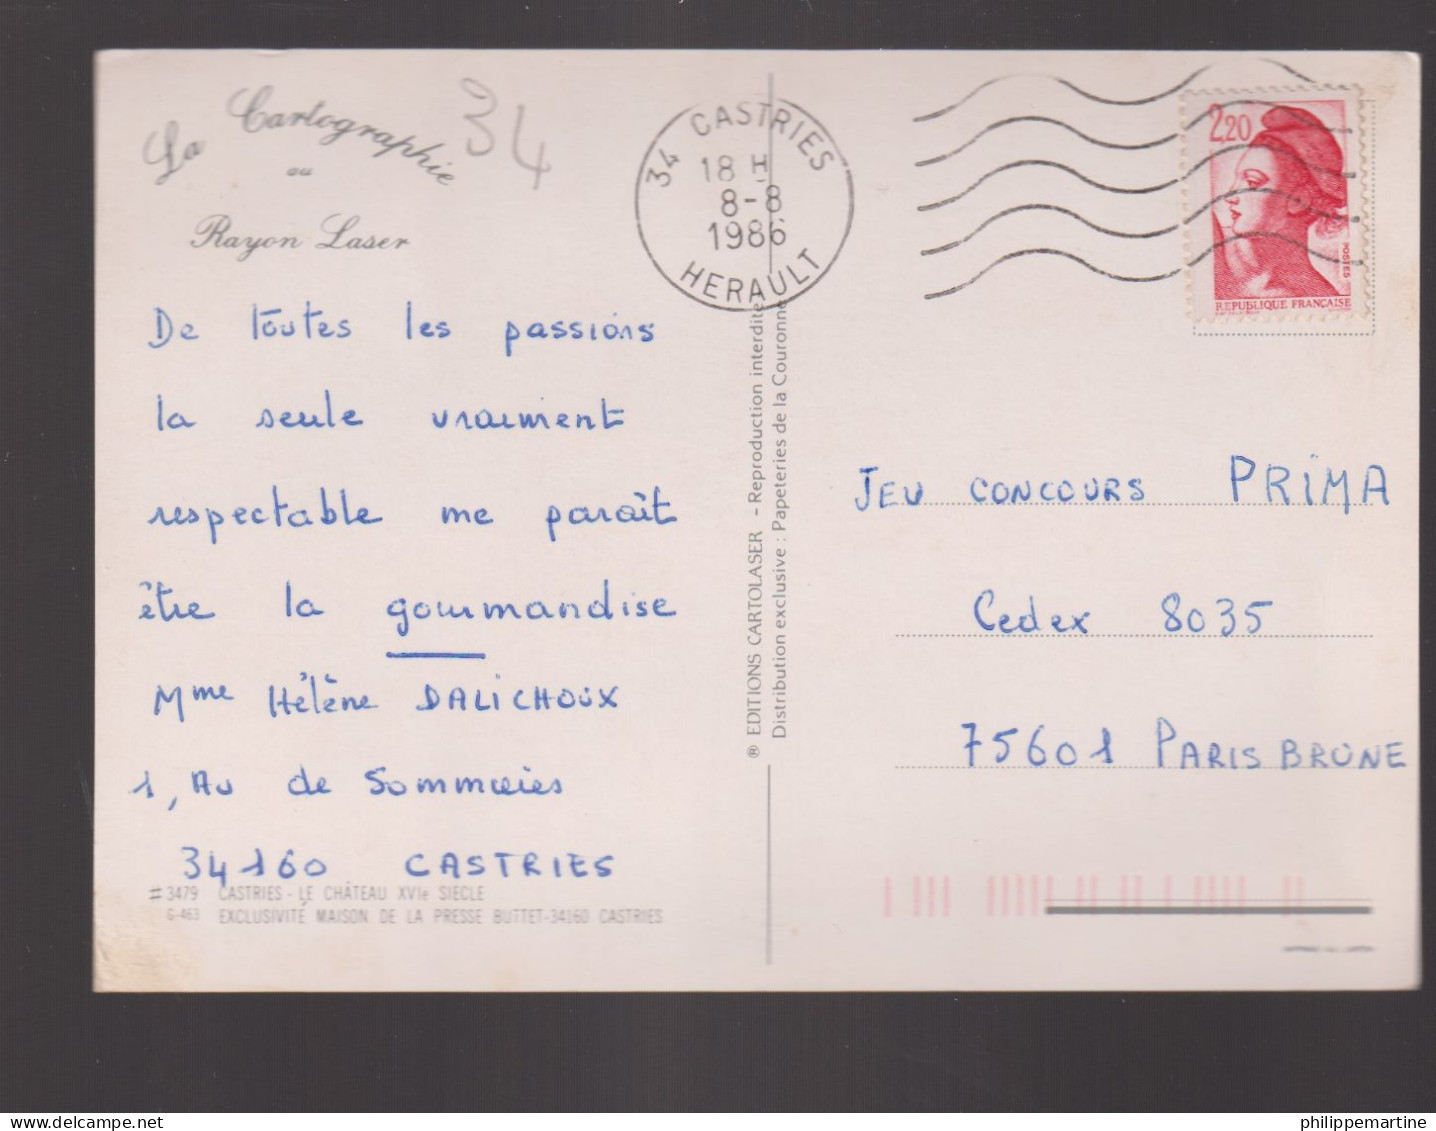 La Cartographie
au
Rayon Laser
34
34 CASTRIES
18 H
8-8
1986
HERAULT
2,20
POSTES
REPUBLIQUE FRANÇAISE
De toutes les passions
la seule vraiment
respectable me paraît
être la gourmandise
Mme Hélène DALICHOUX
1, Av de Sommières
34160 CASTRIES
3479 CASTRIES - LE CHÂTEAU XVIe SIECLE
G-463 EXCLUSIVITÉ MAISON DE LA PRESSE BUTTET-34160 CASTRIES
® EDITIONS CARTOLASER - Reproduction interdite
Distribution exclusive : Papeteries de la Couronne
JEU CONCOURS PRIMA
Cedex 8035
75601 PARIS BRUNE
philippemartine